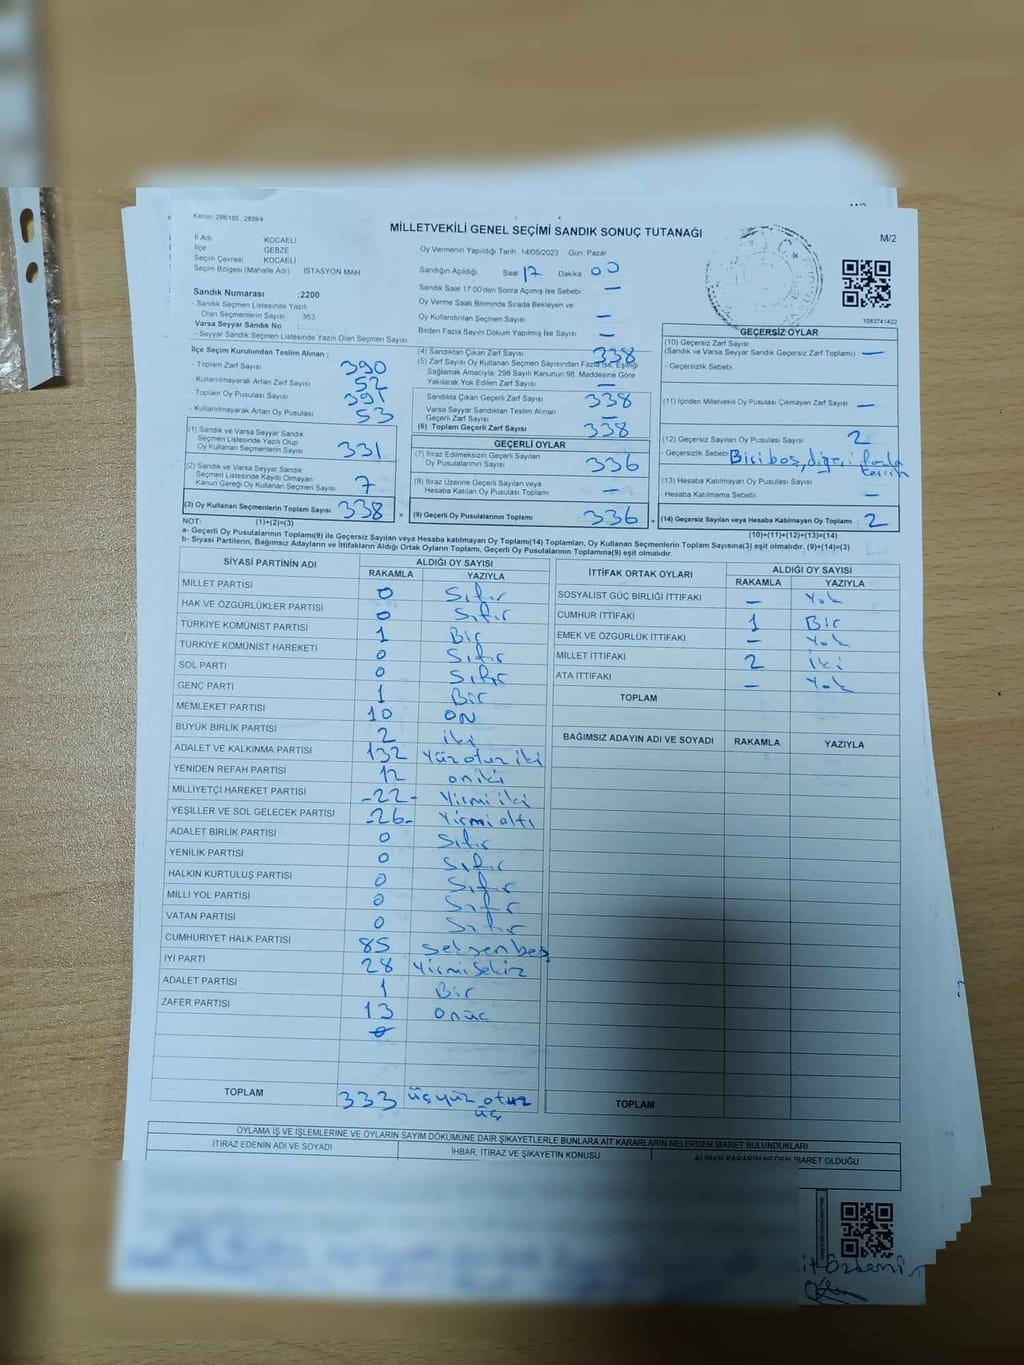 Kanun: 298/105 , 2839/4
MİLLETVEKİLİ GENEL SEÇİMİ SANDIK SONUÇ TUTANAĞI
M/2
İl Adı KOCAELİ
İlçe GEBZE
Seçim Çevresi KOCAELİ
Seçim Bölgesi (Mahalle Adı) İSTASYON MAH
Oy Vermenin Yapıldığı Tarih 14/05/2023 Gün Pazar
Sandığın Açıldığı Saat 17 Dakika 00
Sandık Saat 17:00'den Sonra Açımış İse Sebebi —
Oy Verme Saati Bitiminde Sırada Bekleyen ve
Oy Kullandırılan Seçmen Sayısı —
Birden Fazla Sayım Döküm Yapılmış İse Sayısı —
1083741422
Sandık Numarası :2200
- Sandık Seçmen Listesinde Yazılı
Olan Seçmenlerin Sayısı 363
Varsa Seyyar Sandık No :
- Seyyar Sandık Seçmen Listesinde Yazılı Olan Seçmen Sayısı
İlçe Seçim Kurulundan Teslim Alınan :
- Toplam Zarf Sayısı 390
- Kullanılmayarak Artan Zarf Sayısı 52
- Toplam Oy Pusulası Sayısı 391
- Kullanılmayarak Artan Oy Pusulası 53
(1) Sandık ve Varsa Seyyar Sandık
Seçmen Listesinde Yazılı Olup
Oy Kullanan Seçmenlerin Sayısı 331
(2) Sandık ve Varsa Seyyar Sandık
Seçmen Listesinde Kayıtlı Olmayan
Kanun Gereği Oy Kullanan Seçmen Sayısı 7
(3) Oy Kullanan Seçmenlerin Toplam Sayısı 338
(1)+(2)=(3)
(4) Sandıktan Çıkan Zarf Sayısı 338
(5) Zarf Sayısı Oy Kullanan Seçmen Sayısından Fazla İse, Eşitliği
Sağlamak Amacıyla; 298 Sayılı Kanunun 98. Maddesine Göre
Yakılarak Yok Edilen Zarf Sayısı —
Sandıkta Çıkan Geçerli Zarf Sayısı 338
Varsa Seyyar Sandıktan Teslim Alınan
Geçerli Zarf Sayısı —
(6) Toplam Geçerli Zarf Sayısı 338
GEÇERLİ OYLAR
(7) İtiraz Edilmeksizin Geçerli Sayılan
Oy Pusulalarının Sayısı 336
(8) İtiraz Üzerine Geçerli Sayılan veya
Hesaba Katılan Oy Pusulası Toplamı —
= (9) Geçerli Oy Pusulalarının Toplamı 336
GEÇERSİZ OYLAR
(10) Geçersiz Zarf Sayısı
(Sandık ve Varsa Seyyar Sandık Geçersiz Zarf Toplamı) —
- Geçersizlik Sebebi
(11) İçinden Milletvekili Oy Pusulası Çıkmayan Zarf Sayısı —
(12) Geçersiz Sayılan Oy Pusulası Sayısı 2
- Geçersizlik Sebebi Biri boş, diğeri fazla
tercih
(13) Hesaba Katılmayan Oy Pusulası Sayısı
- Hesaba Katılmama Sebebi —
+ (14) Geçersiz Sayılan veya Hesaba Katılmayan Oy Toplamı : 2
(10)+(11)+(12)+(13)=(14)
NOT:
a- Geçerli Oy Pusulalarının Toplamı(9) ile Geçersiz Sayılan veya Hesaba Katılmayan Oy Toplamı(14) Toplamları, Oy Kullanan Seçmenlerin Toplam Sayısına(3) eşit olmalıdır. (9)+(14)=(3)
b- Siyasi Partilerin, Bağımsız Adayların ve İttifakların Aldığı Ortak Oyların Toplamı, Geçerli Oy Pusulalarının Toplamına(9) eşit olmalıdır.
SİYASİ PARTİNİN ADI ALDIĞI OY SAYISI
RAKAMLA YAZIYLA
MİLLET PARTİSİ 0 Sıfır
HAK VE ÖZGÜRLÜKLER PARTİSİ 0 Sıfır
TÜRKİYE KOMÜNİST PARTİSİ 1 Bir
TÜRKİYE KOMÜNİST HAREKETİ 0 Sıfır
SOL PARTİ 0 Sıfır
GENÇ PARTİ 1 Bir
MEMLEKET PARTİSİ 10 ON
BÜYÜK BİRLİK PARTİSİ 2 iki
ADALET VE KALKINMA PARTİSİ 132 Yüz otuz iki
YENİDEN REFAH PARTİSİ 12 oniki
MİLLİYETÇİ HAREKET PARTİSİ -22- Yirmi iki
YEŞİLLER VE SOL GELECEK PARTİSİ -26- Yirmi altı
ADALET BİRLİK PARTİSİ 0 Sıfır
YENİLİK PARTİSİ 0 Sıfır
HALKIN KURTULUŞ PARTİSİ 0 Sıfır
MİLLİ YOL PARTİSİ 0 Sıfır
VATAN PARTİSİ 0 Sıfır
CUMHURİYET HALK PARTİSİ 85 Seksen beş
İYİ PARTİ 28 Yirmi Sekiz
ADALET PARTİSİ 1 Bir
ZAFER PARTİSİ 13 Onüç
TOPLAM 333 üçyüz otuz
üç
İTTİFAK ORTAK OYLARI ALDIĞI OY SAYISI
RAKAMLA YAZIYLA
SOSYALİST GÜÇ BİRLİĞİ İTTİFAKI — Yok
CUMHUR İTTİFAKI 1 Bir
EMEK VE ÖZGÜRLÜK İTTİFAKI — Yok
MİLLET İTTİFAKI 2 iki
ATA İTTİFAKI — Yok
TOPLAM
BAĞIMSIZ ADAYIN ADI VE SOYADI RAKAMLA YAZIYLA
TOPLAM
OYLAMA İŞ VE İŞLEMLERİNE VE OYLARIN SAYIM DÖKÜMÜNE DAİR ŞİKAYETLERLE BUNLARA AİT KARARLARIN NELERDEN İBARET BULUNDUKLARI
İTİRAZ EDENİN ADI VE SOYADI İHBAR, İTİRAZ VE ŞİKAYETİN KONUSU ALINAN KARARIN NEDEN İBARET OLDUĞU